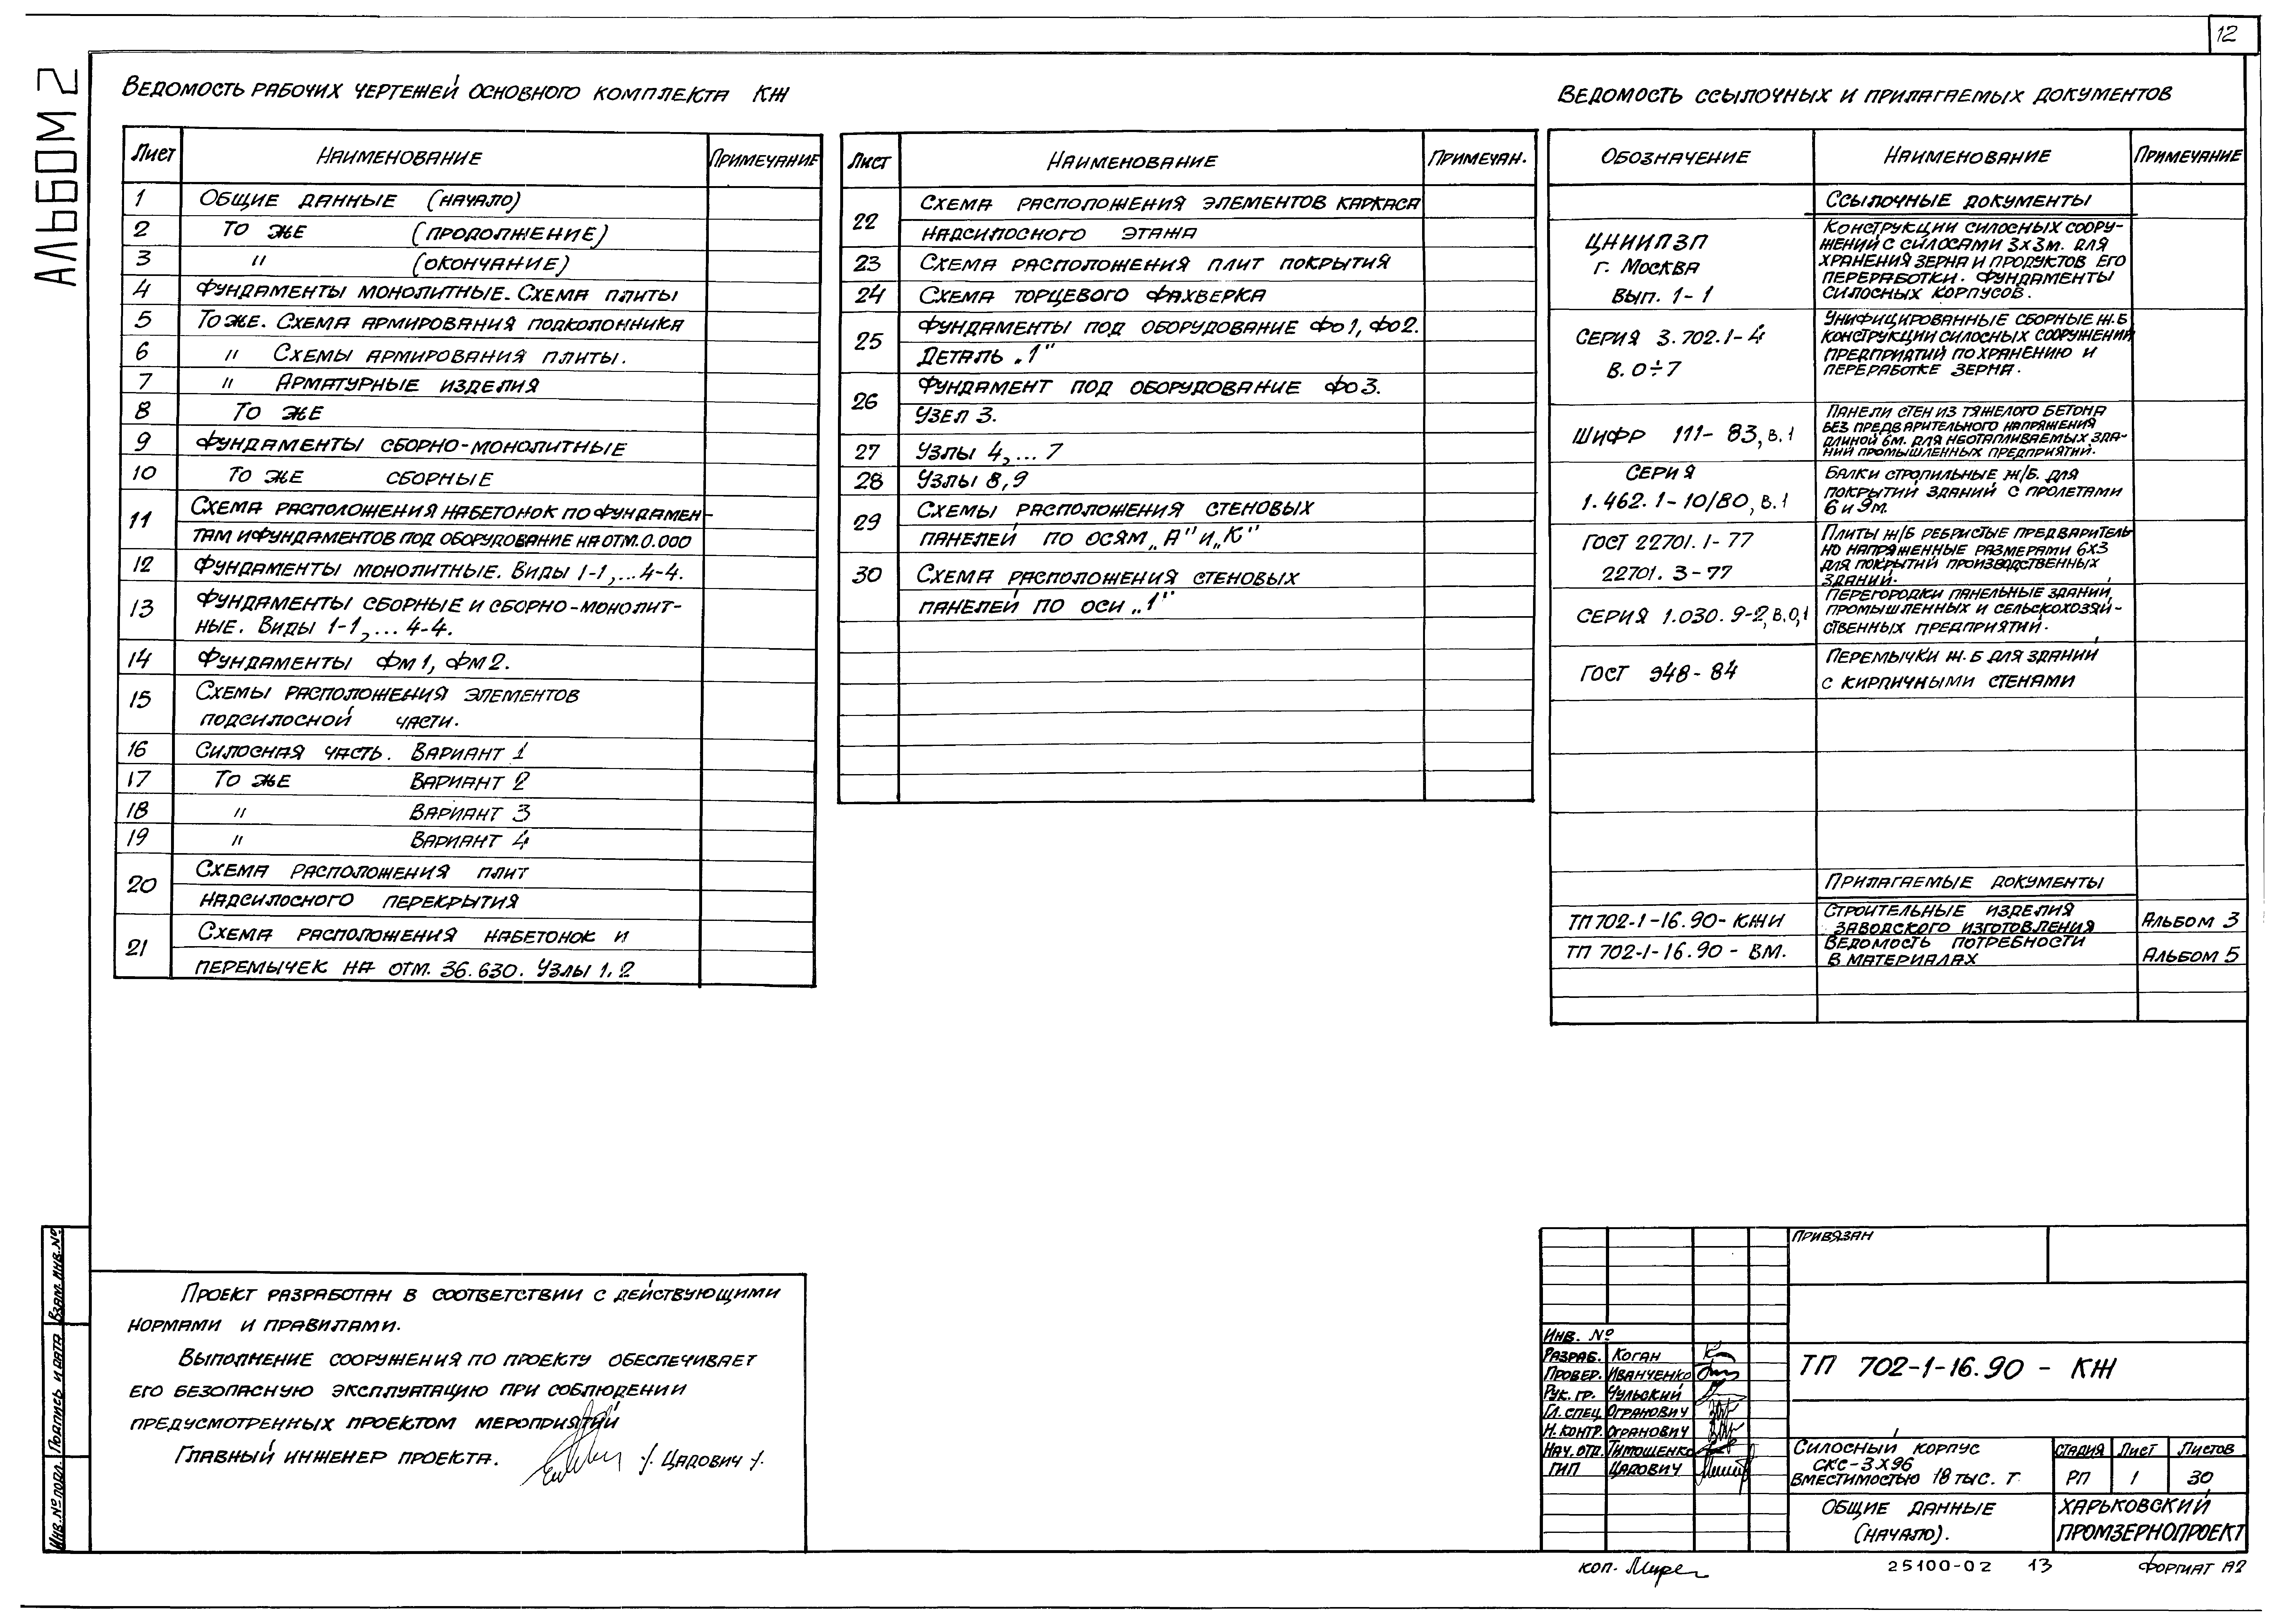 12
АЛЬБОМ 2
ВЕДОМОСТЬ РАБОЧИХ ЧЕРТЕЖЕЙ ОСНОВНОГО КОМПЛЕКТА КЖ
ЛИСТ НАИМЕНОВАНИЕ ПРИМЕЧАНИЕ
1 ОБЩИЕ ДАННЫЕ (НАЧАЛО)
2 ТО ЖЕ (ПРОДОЛЖЕНИЕ)
3 " (ОКОНЧАНИЕ)
4 ФУНДАМЕНТЫ МОНОЛИТНЫЕ. СХЕМА ПЛИТЫ
5 ТО ЖЕ. СХЕМА АРМИРОВАНИЯ ПОДКОЛОННИКА
6 " СХЕМЫ АРМИРОВАНИЯ ПЛИТЫ.
7 " АРМАТУРНЫЕ ИЗДЕЛИЯ
8 ТО ЖЕ
9 ФУНДАМЕНТЫ СБОРНО-МОНОЛИТНЫЕ
10 ТО ЖЕ СБОРНЫЕ
11 СХЕМА РАСПОЛОЖЕНИЯ НАБЕТОНОК ПО ФУНДАМЕН-
ТАМ И ФУНДАМЕНТОВ ПОД ОБОРУДОВАНИЕ НА ОТМ. 0.000
12 ФУНДАМЕНТЫ МОНОЛИТНЫЕ. ВИДЫ 1-1,...4-4.
13 ФУНДАМЕНТЫ СБОРНЫЕ И СБОРНО-МОНОЛИТ-
НЫЕ. ВИДЫ 1-1,...4-4.
14 ФУНДАМЕНТЫ ФМ1, ФМ2.
15 СХЕМЫ РАСПОЛОЖЕНИЯ ЭЛЕМЕНТОВ
ПОДСИЛОСНОЙ ЧАСТИ.
16 СИЛОСНАЯ ЧАСТЬ. ВАРИАНТ 1
17 ТО ЖЕ ВАРИАНТ 2
18 " ВАРИАНТ 3
19 " ВАРИАНТ 4
20 СХЕМА РАСПОЛОЖЕНИЯ ПЛИТ
НАДСИЛОСНОГО ПЕРЕКРЫТИЯ
21 СХЕМА РАСПОЛОЖЕНИЯ НАБЕТОНОК И
ПЕРЕМЫЧЕК НА ОТМ. 36.630. УЗЛЫ 1.2
ЛИСТ НАИМЕНОВАНИЕ ПРИМЕЧАН.
22 СХЕМА РАСПОЛОЖЕНИЯ ЭЛЕМЕНТОВ КАРКАСА
НАДСИЛОСНОГО ЭТАЖА
23 СХЕМА РАСПОЛОЖЕНИЯ ПЛИТ ПОКРЫТИЯ
24 СХЕМА ТОРЦЕВОГО ФАХВЕРКА
25 ФУНДАМЕНТЫ ПОД ОБОРУДОВАНИЕ ФО1, ФО2.
ДЕТАЛЬ „1"
26 ФУНДАМЕНТ ПОД ОБОРУДОВАНИЕ ФО3.
УЗЕЛ 3.
27 УЗЛЫ 4,...7
28 УЗЛЫ 8,9
29 СХЕМЫ РАСПОЛОЖЕНИЯ СТЕНОВЫХ
ПАНЕЛЕЙ ПО ОСЯМ „А" И „К"
30 СХЕМА РАСПОЛОЖЕНИЯ СТЕНОВЫХ
ПАНЕЛЕЙ ПО ОСИ „1"
ВЕДОМОСТЬ ССЫЛОЧНЫХ И ПРИЛАГАЕМЫХ ДОКУМЕНТОВ
ОБОЗНАЧЕНИЕ НАИМЕНОВАНИЕ ПРИМЕЧАНИЕ
ССЫЛОЧНЫЕ ДОКУМЕНТЫ
ЦНИИПЗП
г. МОСКВА
ВЫП. 1-1
КОНСТРУКЦИИ СИЛОСНЫХ СООРУ-
ЖЕНИЙ С СИЛОСАМИ 3х3м. ДЛЯ
ХРАНЕНИЯ ЗЕРНА И ПРОДУКТОВ ЕГО
ПЕРЕРАБОТКИ. ФУНДАМЕНТЫ
СИЛОСНЫХ КОРПУСОВ.
СЕРИЯ 3.702.1-4
В. 0÷7
УНИФИЦИРОВАННЫЕ СБОРНЫЕ Ж.Б
КОНСТРУКЦИИ СИЛОСНЫХ СООРУЖЕНИЙ
ПРЕДПРИЯТИЙ ПО ХРАНЕНИЮ И
ПЕРЕРАБОТКЕ ЗЕРНА.
ШИФР 111-83, В.1
ПАНЕЛИ СТЕН ИЗ ТЯЖЕЛОГО БЕТОНА
БЕЗ ПРЕДВАРИТЕЛЬНОГО НАПРЯЖЕНИЯ
ДЛИНОЙ 6М. ДЛЯ НЕОТАПЛИВАЕМЫХ ЗДА-
НИЙ ПРОМЫШЛЕННЫХ ПРЕДПРИЯТИЙ.
СЕРИЯ
1.462.1-10/80, В.1
БАЛКИ СТРОПИЛЬНЫЕ Ж/Б. ДЛЯ
ПОКРЫТИЙ ЗДАНИЙ С ПРОЛЕТАМИ
6 И 9М.
ГОСТ 22701.1-77
22701.3-77
ПЛИТЫ Ж/Б РЕБРИСТЫЕ ПРЕДВАРИТЕЛЬ
НО НАПРЯЖЕННЫЕ РАЗМЕРАМИ 6Х3
ДЛЯ ПОКРЫТИЙ ПРОИЗВОДСТВЕННЫХ
ЗДАНИЙ.
СЕРИЯ 1.030.9-2, В.0,1
ПЕРЕГОРОДКИ ПАНЕЛЬНЫЕ ЗДАНИЙ,
ПРОМЫШЛЕННЫХ И СЕЛЬСКОХОЗЯЙ-
СТВЕННЫХ ПРЕДПРИЯТИЙ.
ГОСТ 948-84
ПЕРЕМЫЧКИ Ж.Б ДЛЯ ЗДАНИЙ
С КИРПИЧНЫМИ СТЕНАМИ
ПРИЛАГАЕМЫЕ ДОКУМЕНТЫ
ТП 702-1-16.90-КЖИ СТРОИТЕЛЬНЫЕ ИЗДЕЛИЯ ЗАВОДСКОГО ИЗГОТОВЛЕНИЯ АЛЬБОМ 3
ТП 702-1-16.90-ВМ. ВЕДОМОСТЬ ПОТРЕБНОСТИ В МАТЕРИАЛАХ АЛЬБОМ 5
ПРОЕКТ РАЗРАБОТАН В СООТВЕТСТВИИ С ДЕЙСТВУЮЩИМИ
НОРМАМИ И ПРАВИЛАМИ.
ВЫПОЛНЕНИЕ СООРУЖЕНИЯ ПО ПРОЕКТУ ОБЕСПЕЧИВАЕТ
ЕГО БЕЗОПАСНУЮ ЭКСПЛУАТАЦИЮ ПРИ СОБЛЮДЕНИИ
ПРЕДУСМОТРЕННЫХ ПРОЕКТОМ МЕРОПРИЯТИЙ
ГЛАВНЫЙ ИНЖЕНЕР ПРОЕКТА. /. ЦАДОВИЧ /.
ВЗАМ. ИНВ. №
ПОДПИСЬ И ДАТА
ИНВ. № ПОДЛ.
ПРИВЯЗАН
ИНВ. №
РАЗРАБ. КОГАН
ПРОВЕР. ИВАНЧЕНКО
РУК. ГР. ЧУЛЬСКИЙ
ГЛ. СПЕЦ. ОГРАНОВИЧ
Н. КОНТР. ОГРАНОВИЧ
НАЧ. ОТД. ТИМОШЕНКО
ГИП ЦАДОВИЧ
ТП 702-1-16.90 - КЖ
СИЛОСНЫЙ КОРПУС
СКС-3Х96
ВМЕСТИМОСТЬЮ 18 ТЫС. Т
СТАДИЯ ЛИСТ ЛИСТОВ
РП 1 30
ОБЩИЕ ДАННЫЕ
(НАЧАЛО).
ХАРЬКОВСКИЙ
ПРОМЗЕРНОПРОЕКТ
КОП.
25100-02 13
ФОРМАТ А2